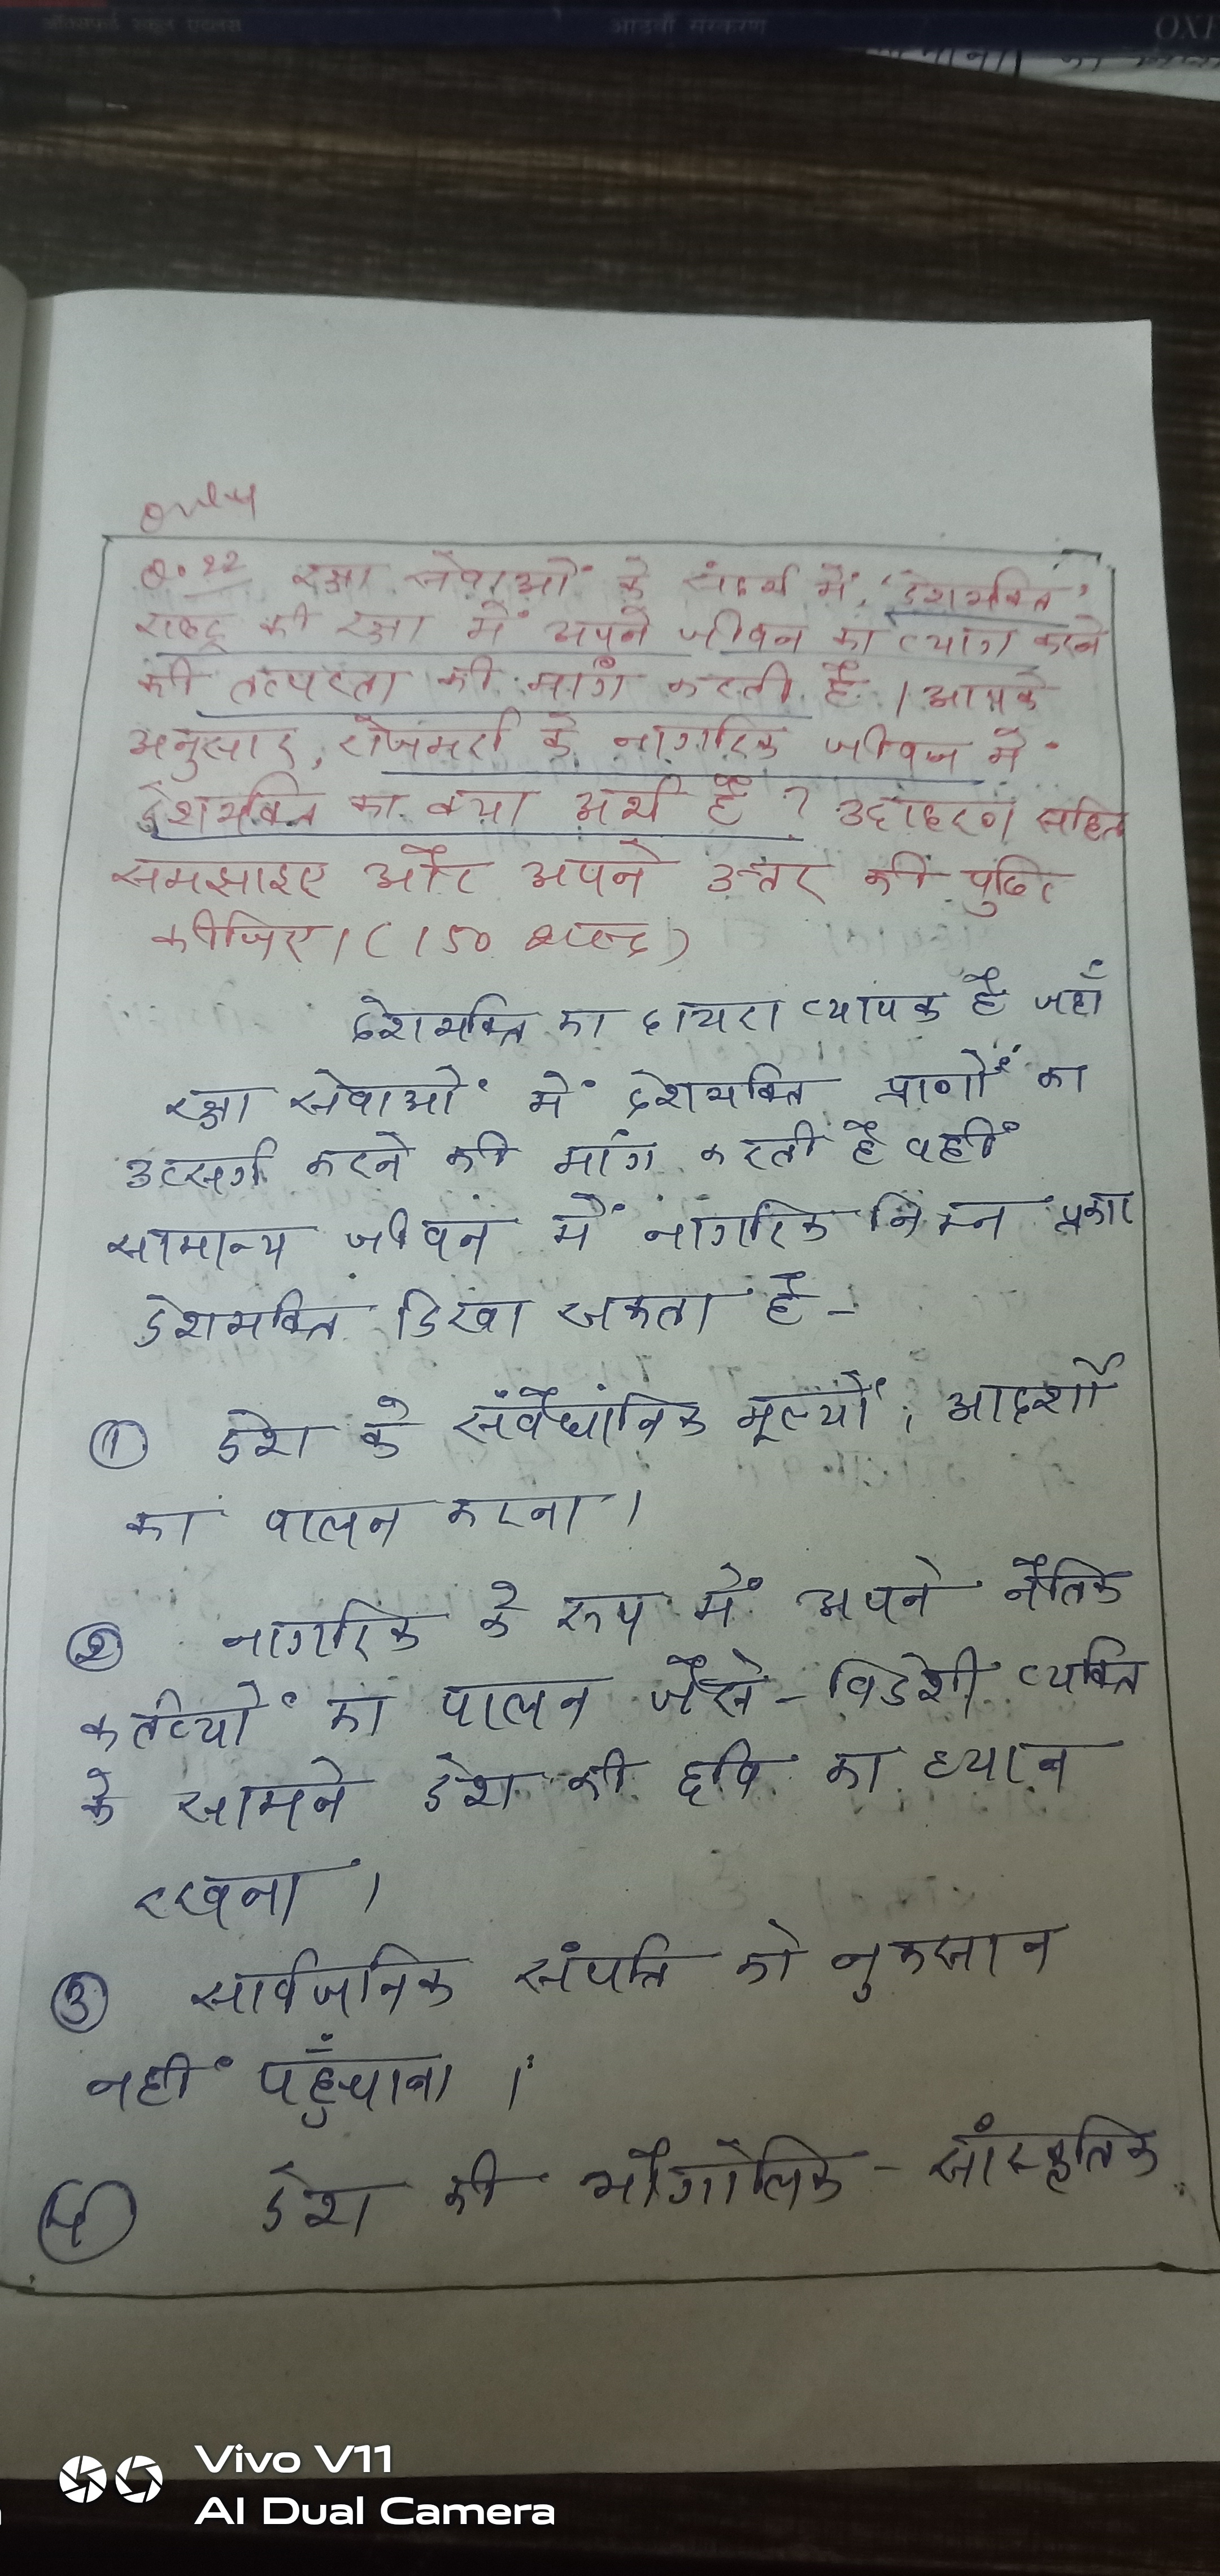 ऑक्सफोर्ड स्कूल एटलस आठवाँ संस्करण OXF
Q.22 रक्षा सेवाओं के संदर्भ में, 'देशभक्ति'
राष्ट्र की रक्षा में अपने जीवन का त्याग करने
की तत्परता की मांग करती है। आपके
अनुसार, रोजमर्रा के नागरिक जीवन में
देशभक्ति का क्या अर्थ है? उदाहरण सहित
समझाइए और अपने उत्तर की पुष्टि
कीजिए। (150 शब्द)
देशभक्ति का दायरा व्यापक है जहाँ
रक्षा सेवाओं में देशभक्ति प्राणों का
उत्सर्ग करने की मांग करती है वहीं
सामान्य जीवन में नागरिक निम्न प्रकार
देशभक्ति दिखा सकता है -
① देश के संवैधानिक मूल्यों, आदर्शों
का पालन करना।
② नागरिक के रूप में अपने नैतिक
कर्तव्यों का पालन जैसे - विदेशी व्यक्ति
के सामने देश की छवि का ध्यान
रखना।
③ सार्वजनिक संपत्ति को नुकसान
नहीं पहुँचाना।
④ देश की भौगोलिक - सांस्कृतिक
Vivo V11
AI Dual Camera